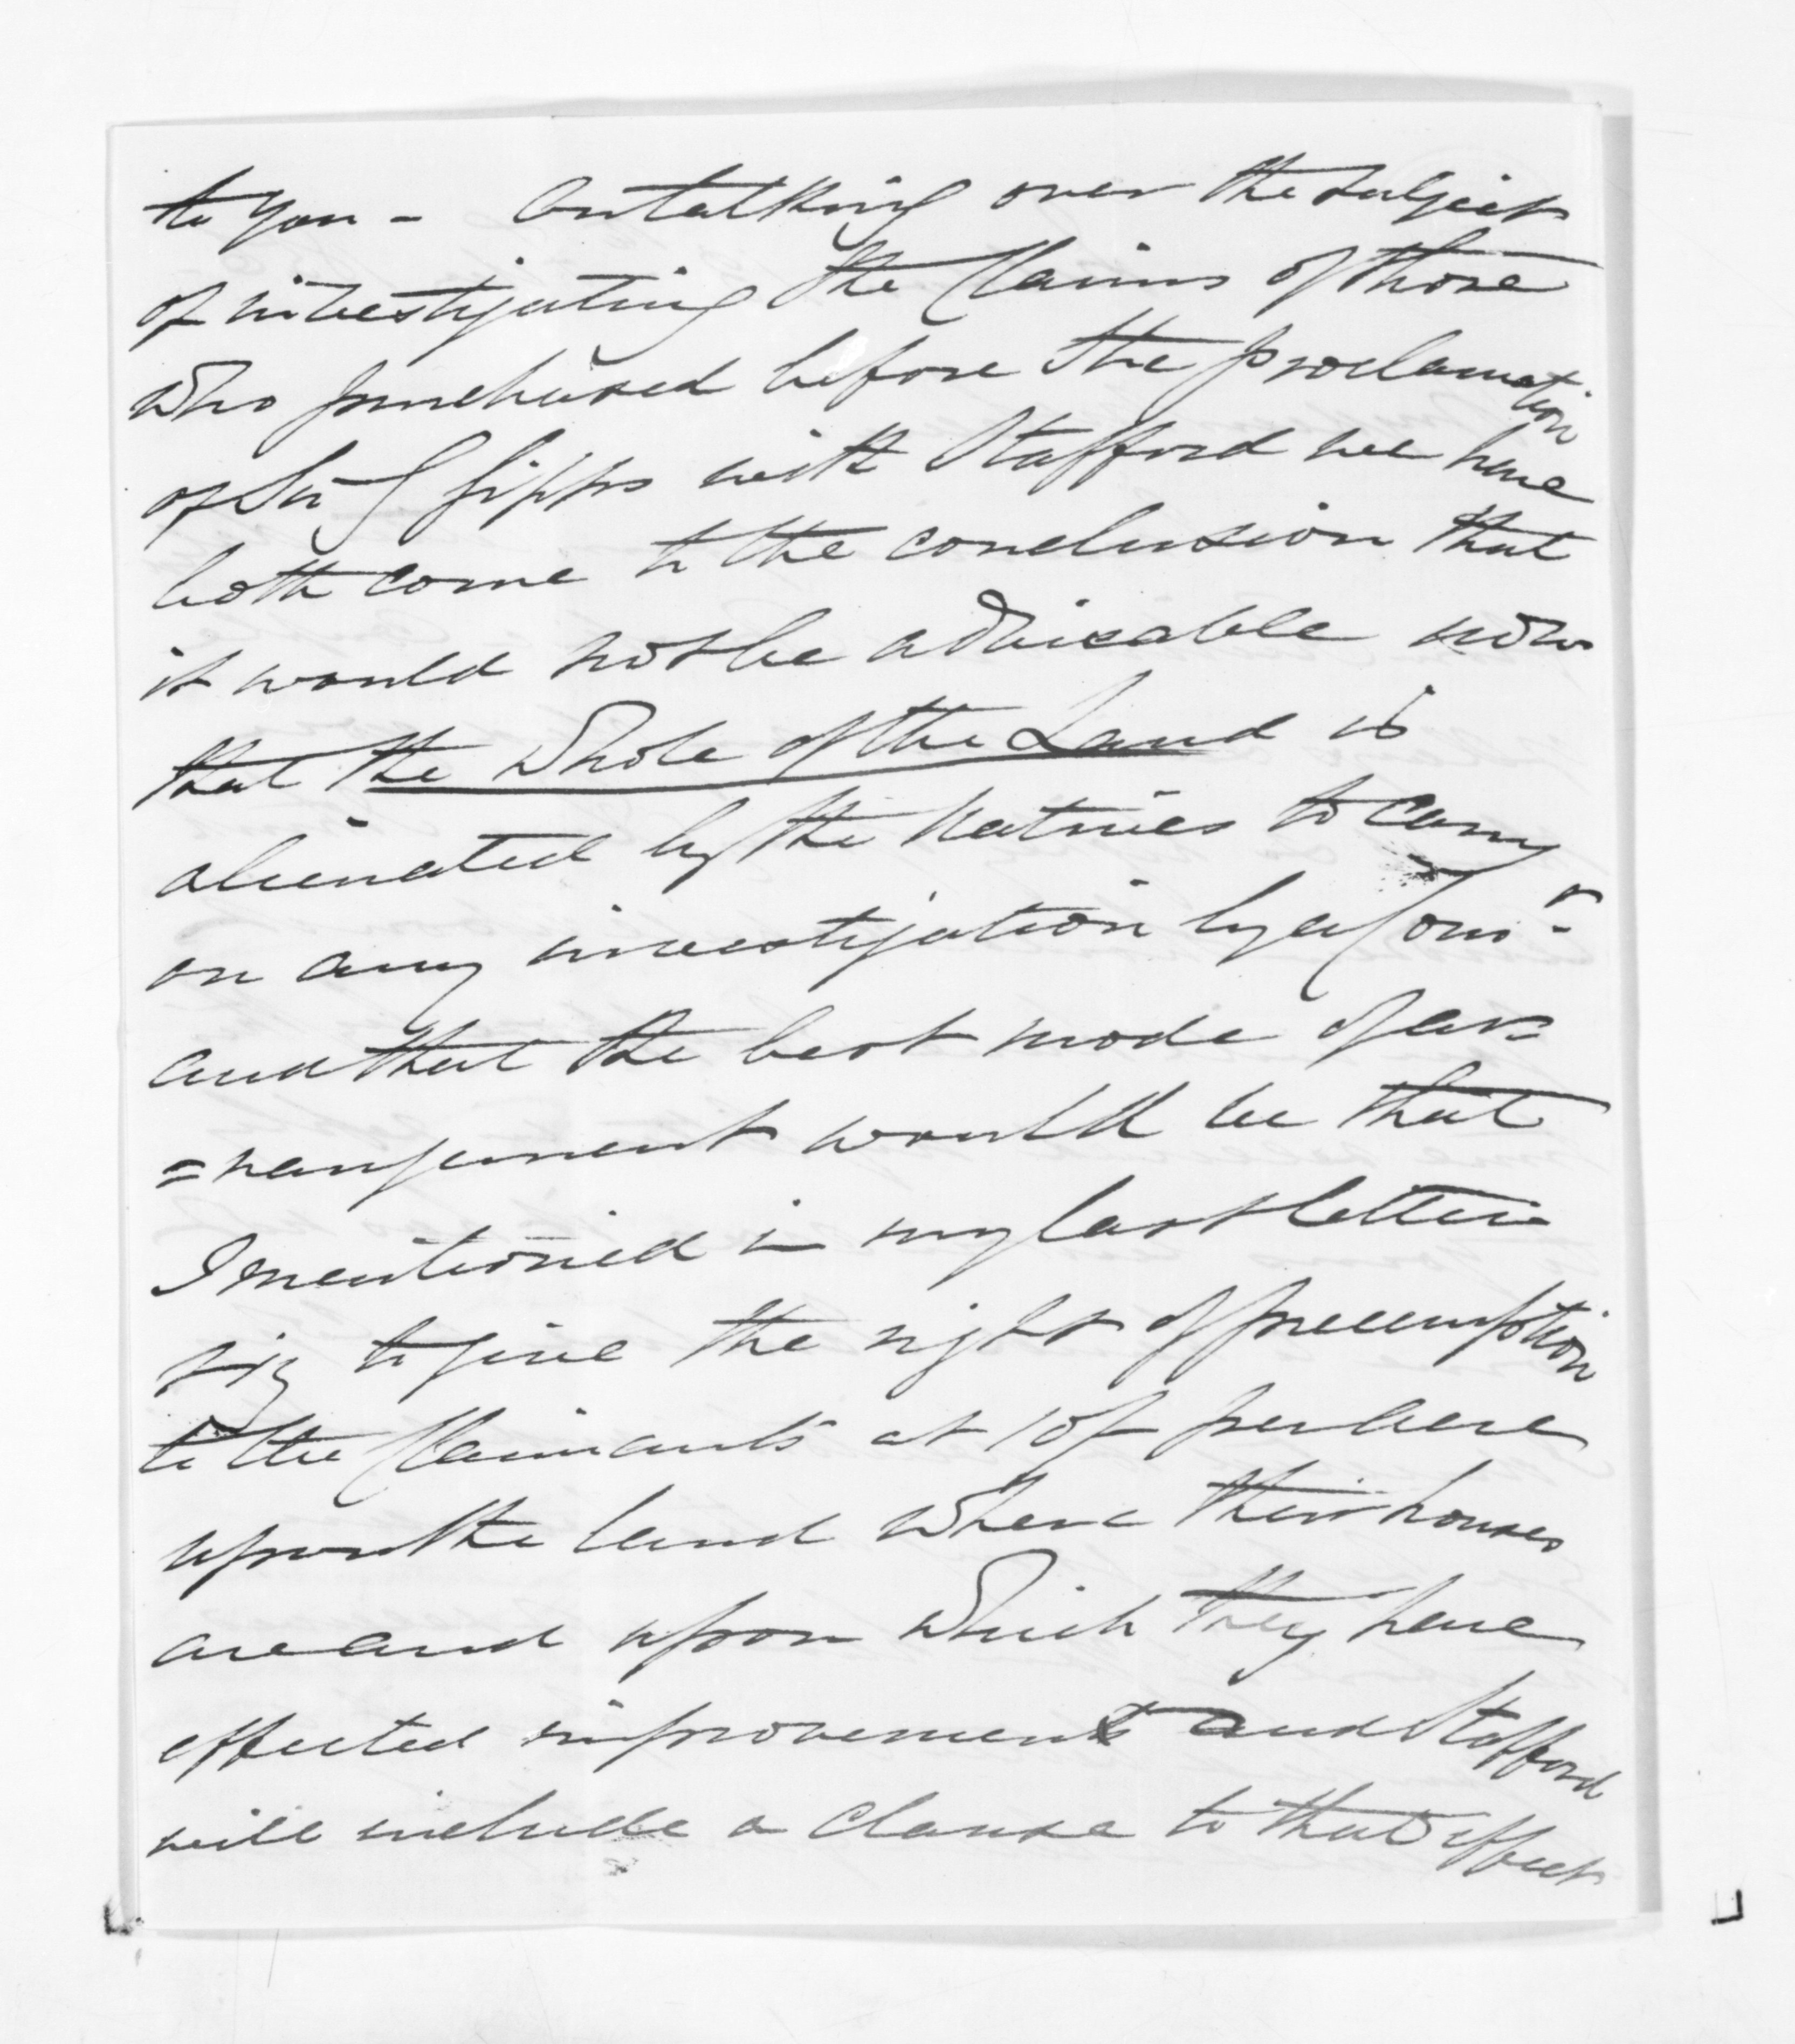 to you - On talking over the subject
of investigating the Claims of those
who purchased before the proclamation
of Sir G Gipps with Stafford we have
both come to the conclusion that
it would not be adviseable now
that the whole of the Land is
alienated by the Natives to carry
on any investigation by a Comr.
and that the best mode of ar=
=rangement would be that
I mentioned in my last letter
viz to give the right of preemption
to the Claimants at 10/ per acre
upon the land where their houses
are and upon which they have
effected improvements and Stafford
will include a clause to that effect